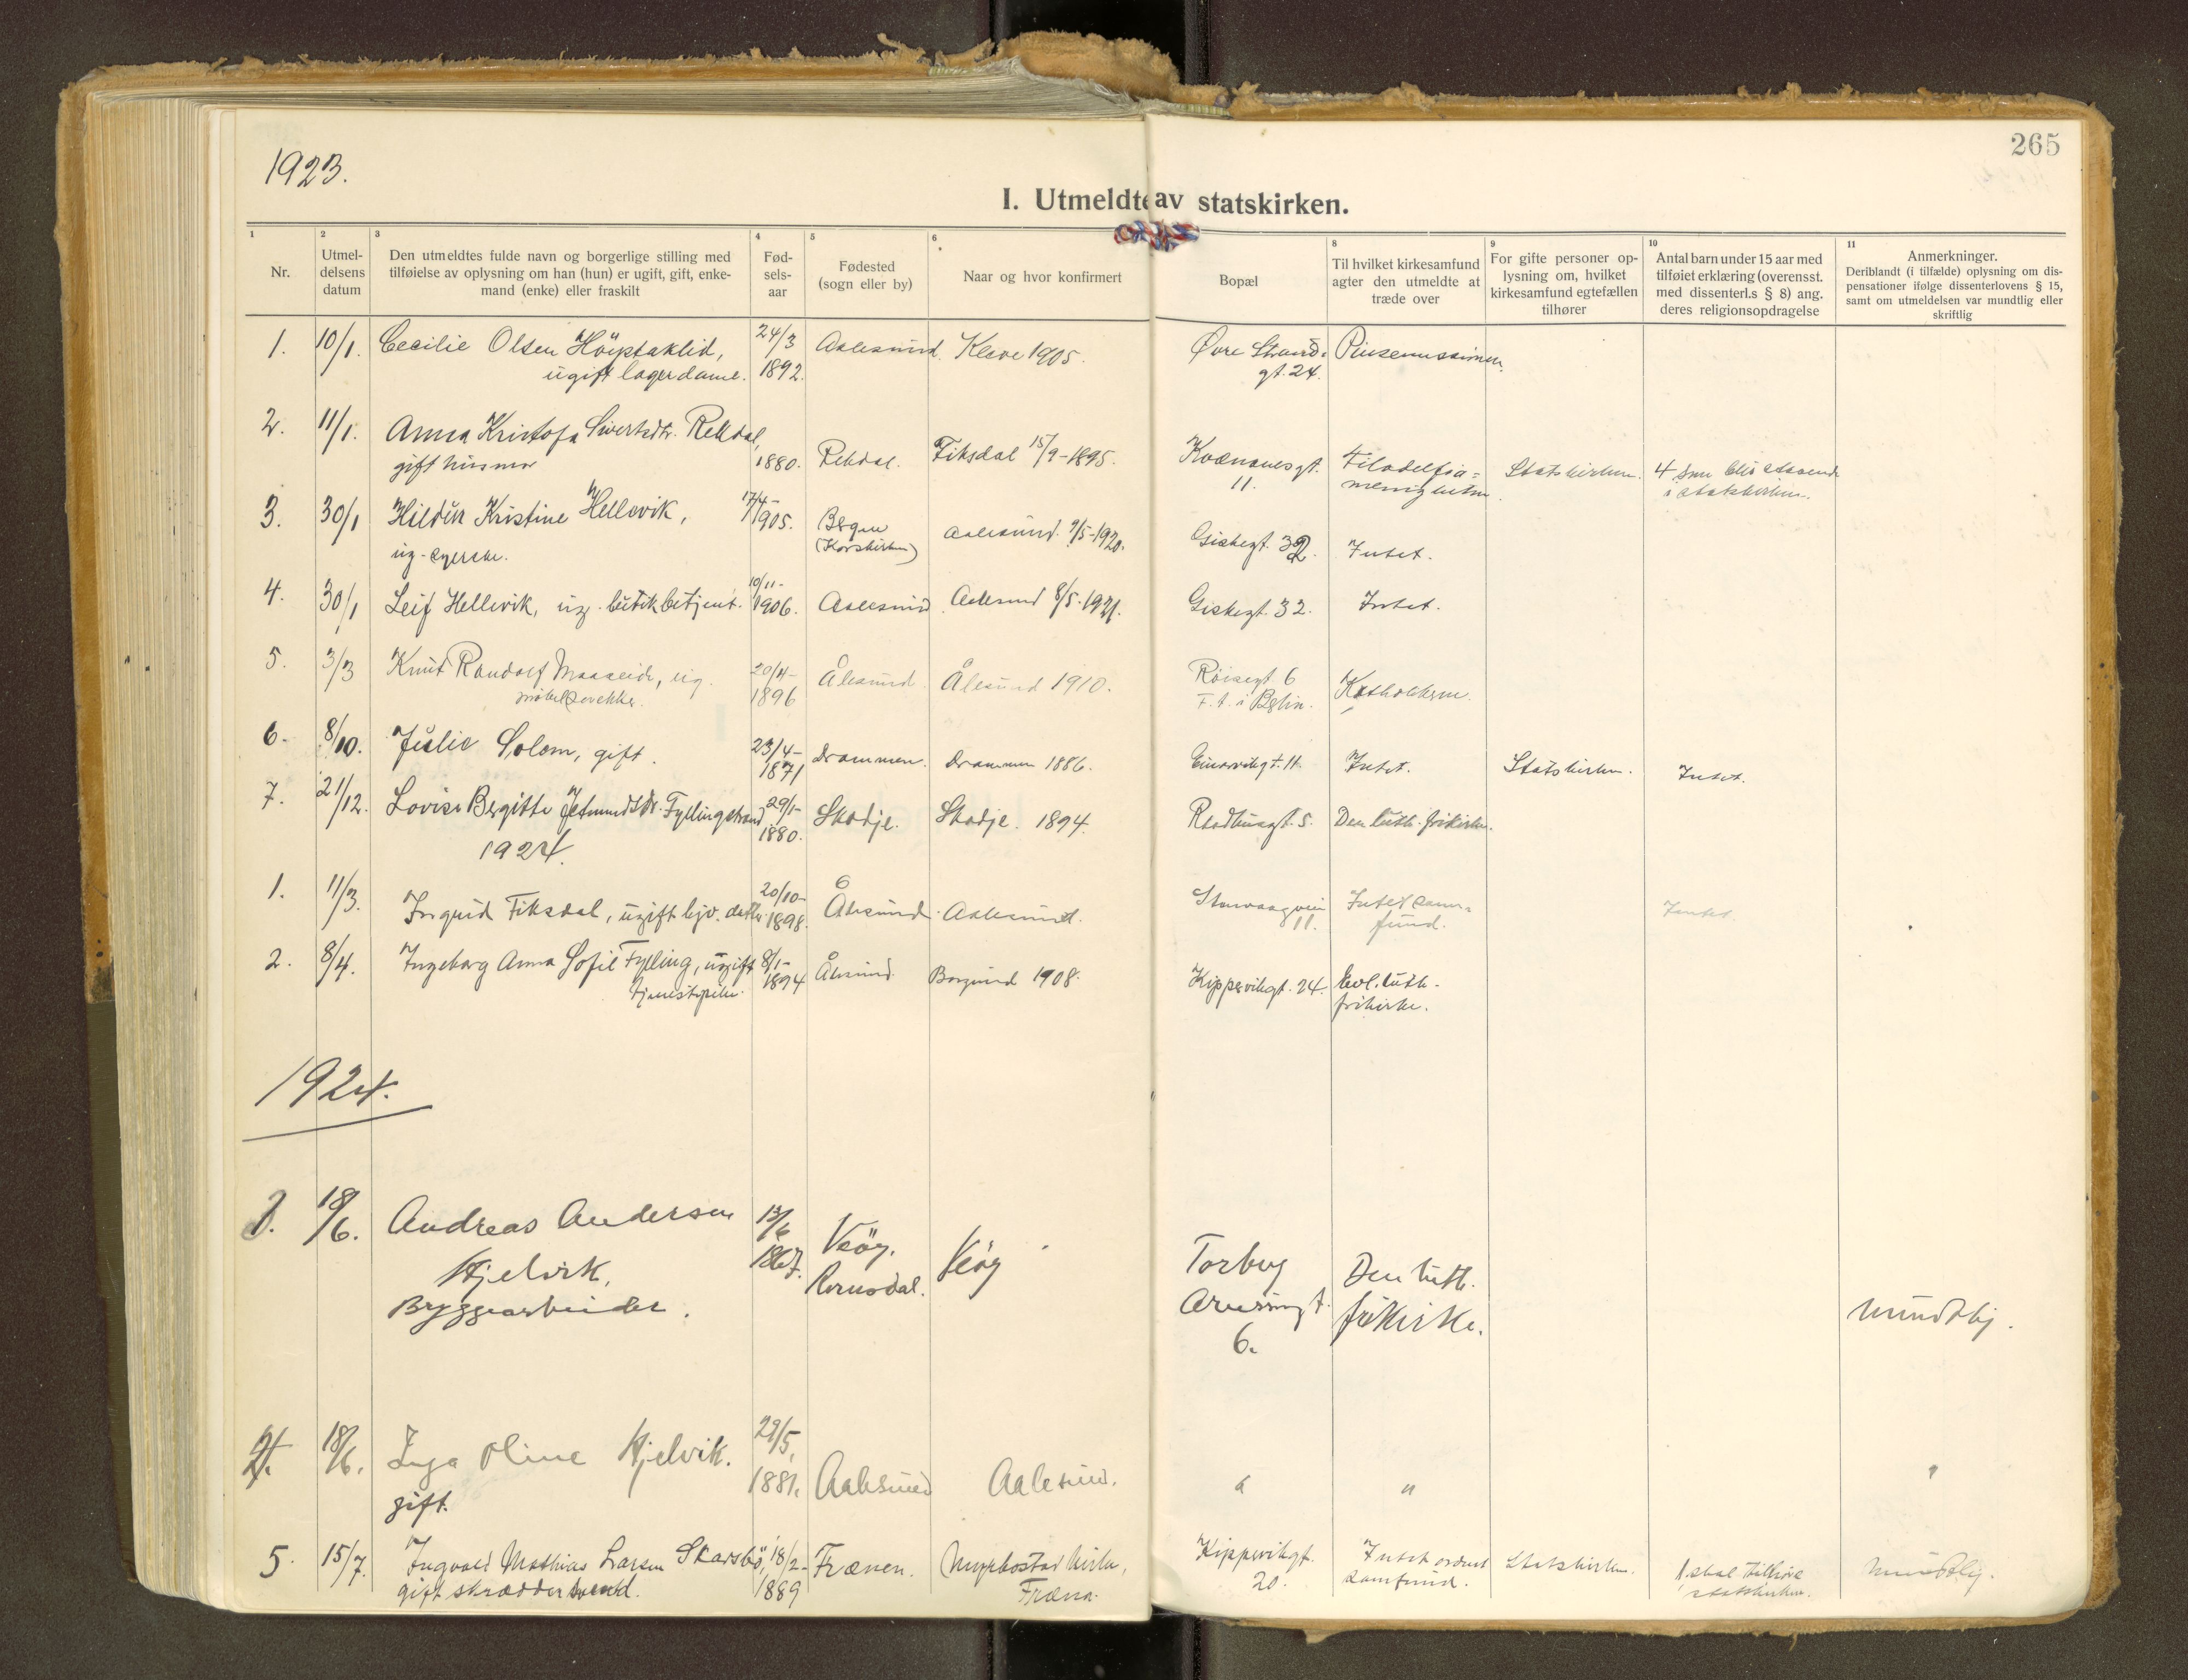 265
1923.
I. Utmeldte av statskirken.
1 2 3 4 5 6 8 9 10 11
Nr.
Utmel-
delsens
datum
Den utmeldtes fulde navn og borgerlige stilling med
tilføielse av oplysning om han (hun) er ugift, gift, enke-
mand (enke) eller fraskilt
Fød-
sels-
aar
Fødested
(sogn eller by)
Naar og hvor konfirmert
Bopæl
Til hvilket kirkesamfund
agter den utmeldte at
træde over
For gifte personer op-
lysning om, hvilket
kirkesamfund egtefællen
tilhører
Antal barn under 15 aar med
tilføiet erklæring (overensst.
med dissenterl.s § 8) ang.
deres religionsopdragelse
Anmerkninger.
Deriblandt (i tilfælde) oplysning om dis-
pensationer ifølge dissenterlovens § 15,
samt om utmeldelsen var mundtlig eller
skriftlig
1. 10/1. Cecilie Olsen 24/3 Aalesund. Kleve 1905. Øvre Strand- Pinsemissionen.
ugift lagerdame. 1892. gt. 24.
2. 11/1. Anna Kristofa Sivertsdtr. Rekdal, 1880. Rekdal. Fiksdal 15/9-1895. Kvænnesgt. Filadelfia= Statskirken. 4 som blir staaende
gift husmor 11. menigheten. i statskirken.
3. 30/1 Kristine Hellevik, 17/4- 1905. Bergen Aalesund 1920. Giskegt. 32. Intet.
ug. syerske. (Korskirken)
4. 30/1 Leif Hellevik, ug. butikbetjent. 10/11- 1906. Aalesund. Aalesund 8/5-1921. Giskegt. 32. Intet.
5. 3/3 Knut Randolf Maaseide, ug. 20/4- Ålesund. Ålesund 1910. Røisegt 6 Katholikerne.
møbelsnekker. 1896 F. t. i Berlin.
6. 8/10. Julie Solem, gift. 23/4- 1871 Drammen. Drammen 1886. Einarvikgt. 11. Intet. Statskirken. Intet.
7. 21/12. Lovise Bergitte Jetmundsdtr. Fyllingstrand 29/1- 1880. Skodje. Skodje. 1894. Raadhusgt. 5. Den luth. frikirke.
1924.
1. 11/3. Ingrid Fiksdal, ugift hjv. datter 20/10- 1898. Ålesund. Aalesund. 11. Intet sam= Intet.
fund.
2. 8/4. Ingeborg Anna Sofie Fylling, ugift 8/1- Ålesund. Borgund 1908. Kippervikgt. 24. Evl. luth.
tjenestepike. 1894 frikirke.
1924.
3. 18/6. Andreas Andersen 13/6 Veøy, Veøy Torbey Den luth.
Hjelvik, 1867. Romsdal. Arvesensgt. frikirke.
Bryggearbeider. 6. Mundtlig.
18/6. Inga Oline Hjelvik. 29/5, Aalesund Aalesund. " " "
gift. 1881.
5. 15/7. Ingvald Mathias Larsen Skarsbø, 18/2- Frænen. Myrbostad kirke, Kippervikgt. Intet ordnet Statskirken. 1. skal tilhøre Mundtlig.
gift skræddersvend. 1889 Fræna. 20. samfund. statskirken.